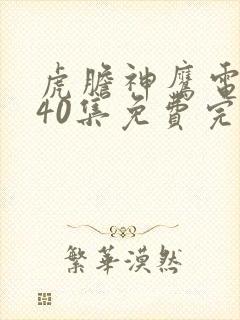 虎膽神鷹電
40集免費完
繁華漠然